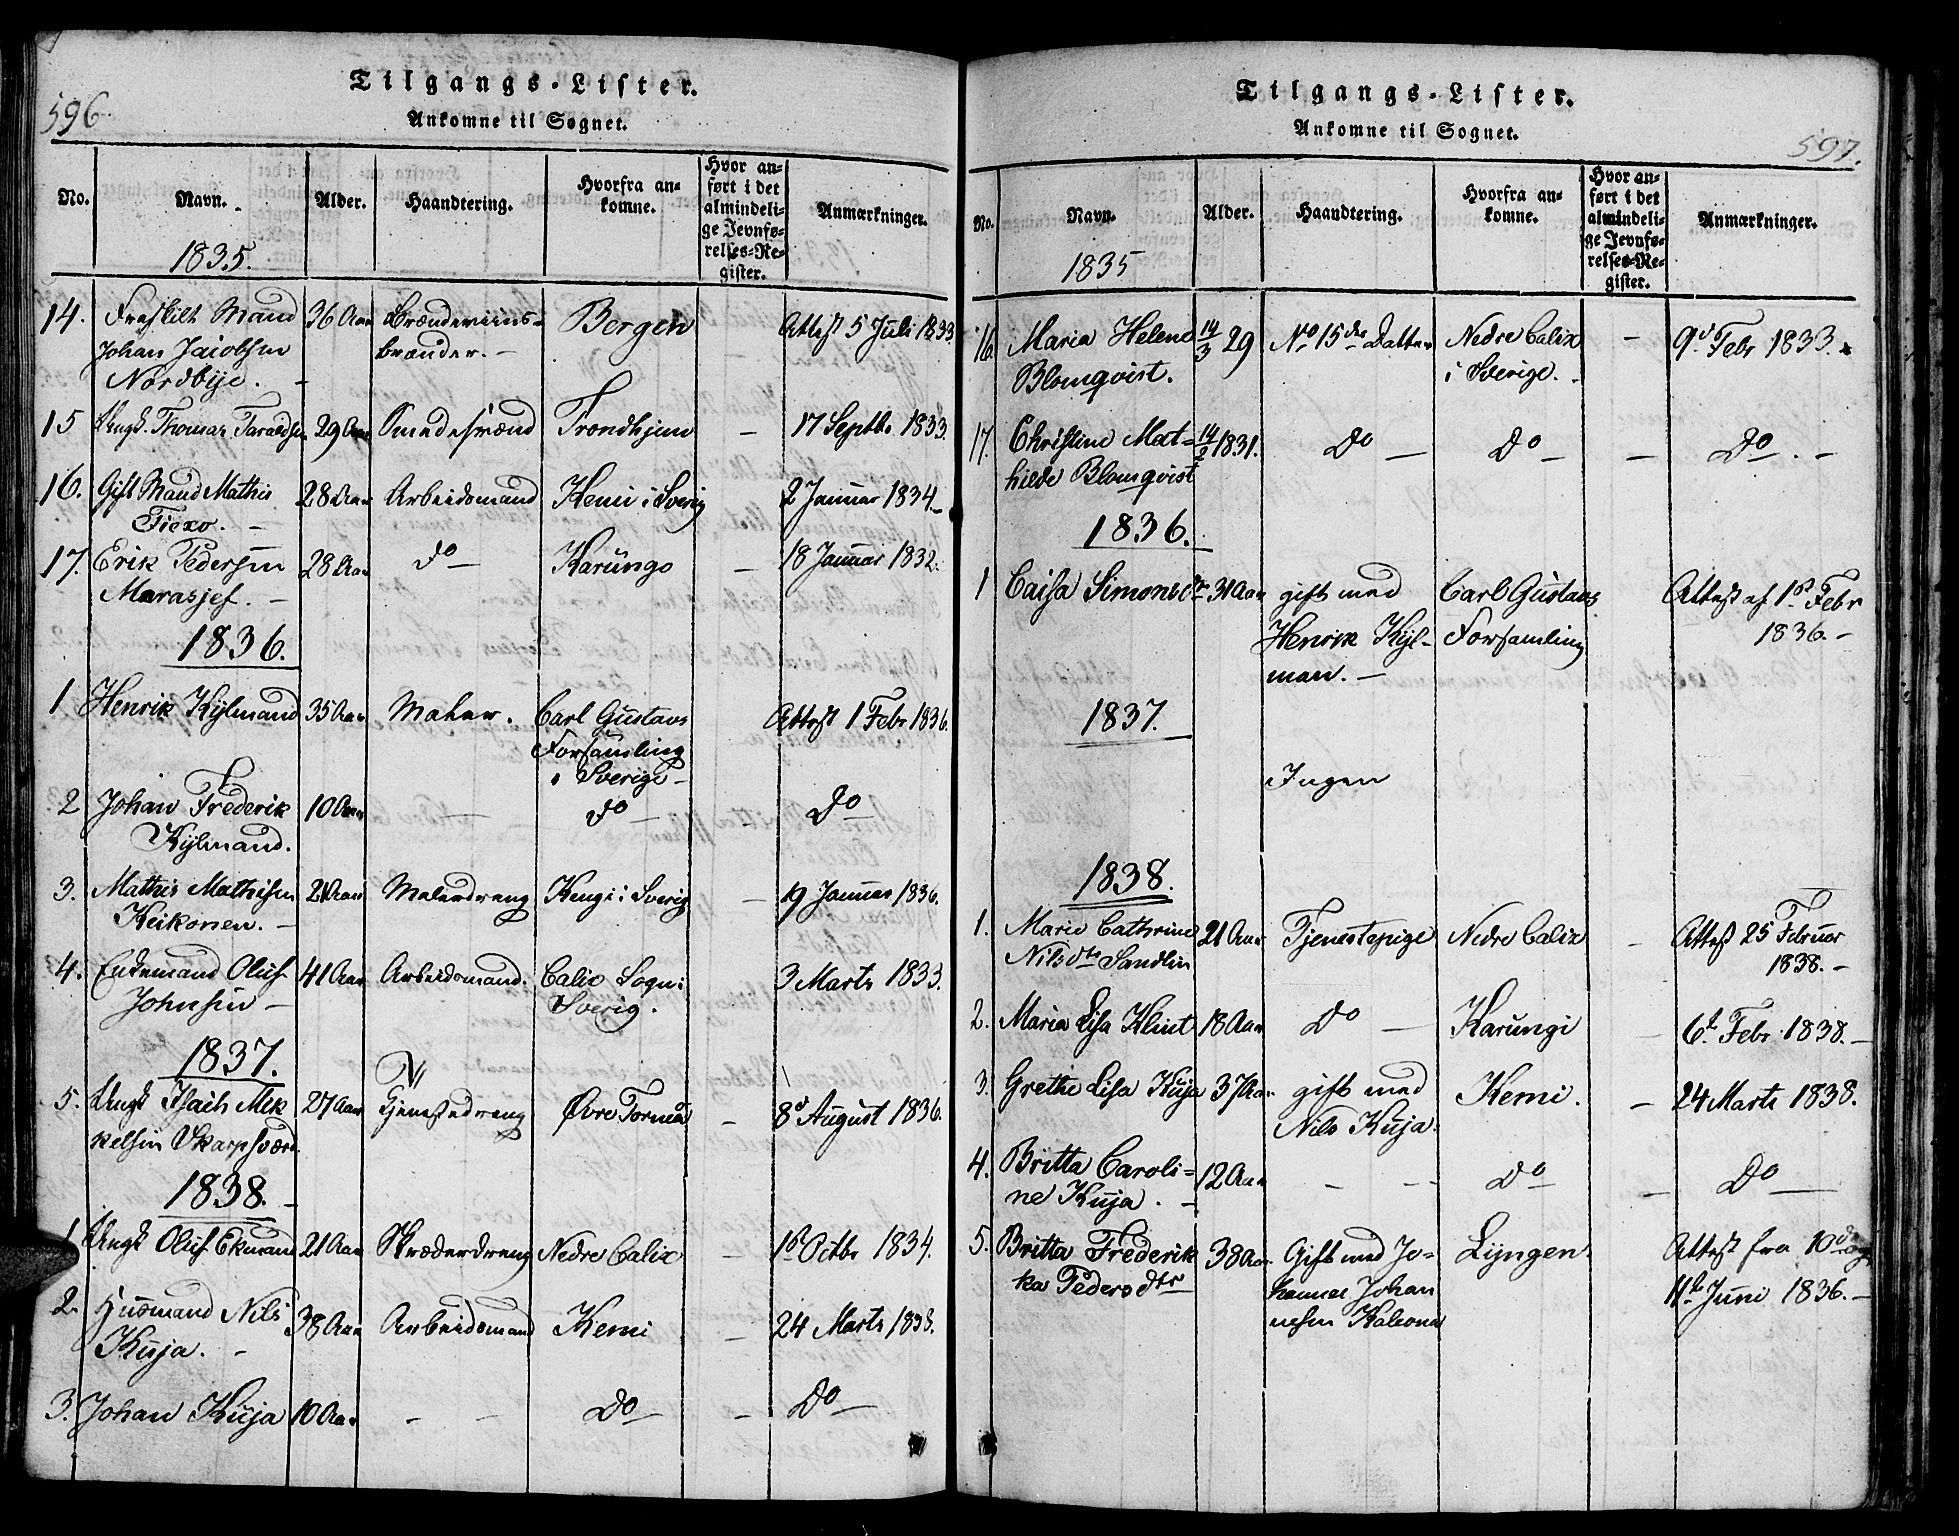 596.
Tilgangs-Lister.
Ankomne til Sognet.
No. Navn. Alder. Haandtering. Hvorfra ankomne. Hvor anført i det almindelige Jevnførelses-Register. Anmærkninger.
1835.
14. Fraskilt Mand 36 Aar Brændeviins- Bergen Attest 5 Juli 1833
Johan Jacobsen brænder. -
Nordbye. -
15 Ungk. Thomas Taraldsen 29 Aar Smedesvend Trondhjem - 17 Septbr 1833.
16. Gift Mand Mathis 28 Aar Arbeidsmand Kemi i Sverig 2 Januar 1834. -
Fiexo. -
17. Erik Pedersen 28 Aar do Karungo - 18 Januar 1832.
Marasjef. -
1836.
1 Henrik Kylmand 35 Aar Maler. Carl Gustavs Attest 1 Febr 1836.
Forsamling
i Sverige -
2 Johan Frederik 10 Aar - do - - Do
Kylmand.
3. Mathis Mathisen 21 Aar Malerdreng Kengi i Sverig - 19 Januar 1836.
Keikonen. -
4. Enkemand Oluf 41 Aar Arbeidsmand. Calix Sogn i 3 Marts 1833.
Johnsen - Sverig.
1837.
5. Ungk Isach Mik 27 Aar Tjenestedreng Øvre Torneå - 8d August 1836.
kelsen Skarpsværd.
1838. -
1. Ungk Oluf Ekmand 21 Aar Skræderdreng Nedre Calix - 1st Octbr 1834.
2. Husmand Nils 38 Aar Arbeidsmand Kemi - 24 Marts 1838.
Kuja. -
3. Johan Kuja 10 Aar - - Do - - Do -
597.
Tilgangs-Lister.
Ankomne til Sognet.
No. Navn. Alder. Haandtering. Hvorfra ankomne. Hvor anført i det almindelige Jevnførelses-Register. Anmærkninger.
1835
16. Maria Helene 14/3 29 No 15des Datter Nedre Calix - 9d Febr 1833.
Blomqvist. i Sverige. -
17. Christine Mat- 14/2 1831. Do - Do - - Do. -
hilde Blomqvist
1836.
1 Caisa Simonsdtr 31 Aar gift med Carl Gustavs Attest af 1st Febr
Henrik Kyl- Forsamling 1836. -
man. -
1837.
Ingen
1838.
1. Marie Cathrine 21 Aar Tjenestepige Nedre Calix - Attest 25 Februar
Nilsdtr Sandlin 1838. -
2. Maria Lisa Klint 18 Aar Do - Karungi - 6te Febr 1838. -
3. Grethe Lisa Kuja 37 Aar gift med Kemi. - 24 Marts 1838.
Nils Kuja.
4. Britta Caroli- 12 Aar - - - do - - Do -
ne Kuja. -
5. Britta Frederik 38 Aar Gift med Jo- Lyngen. Attest fra 10de og
ka Pedersdtr hannes Johan 11te Juni 1836. -
nesen